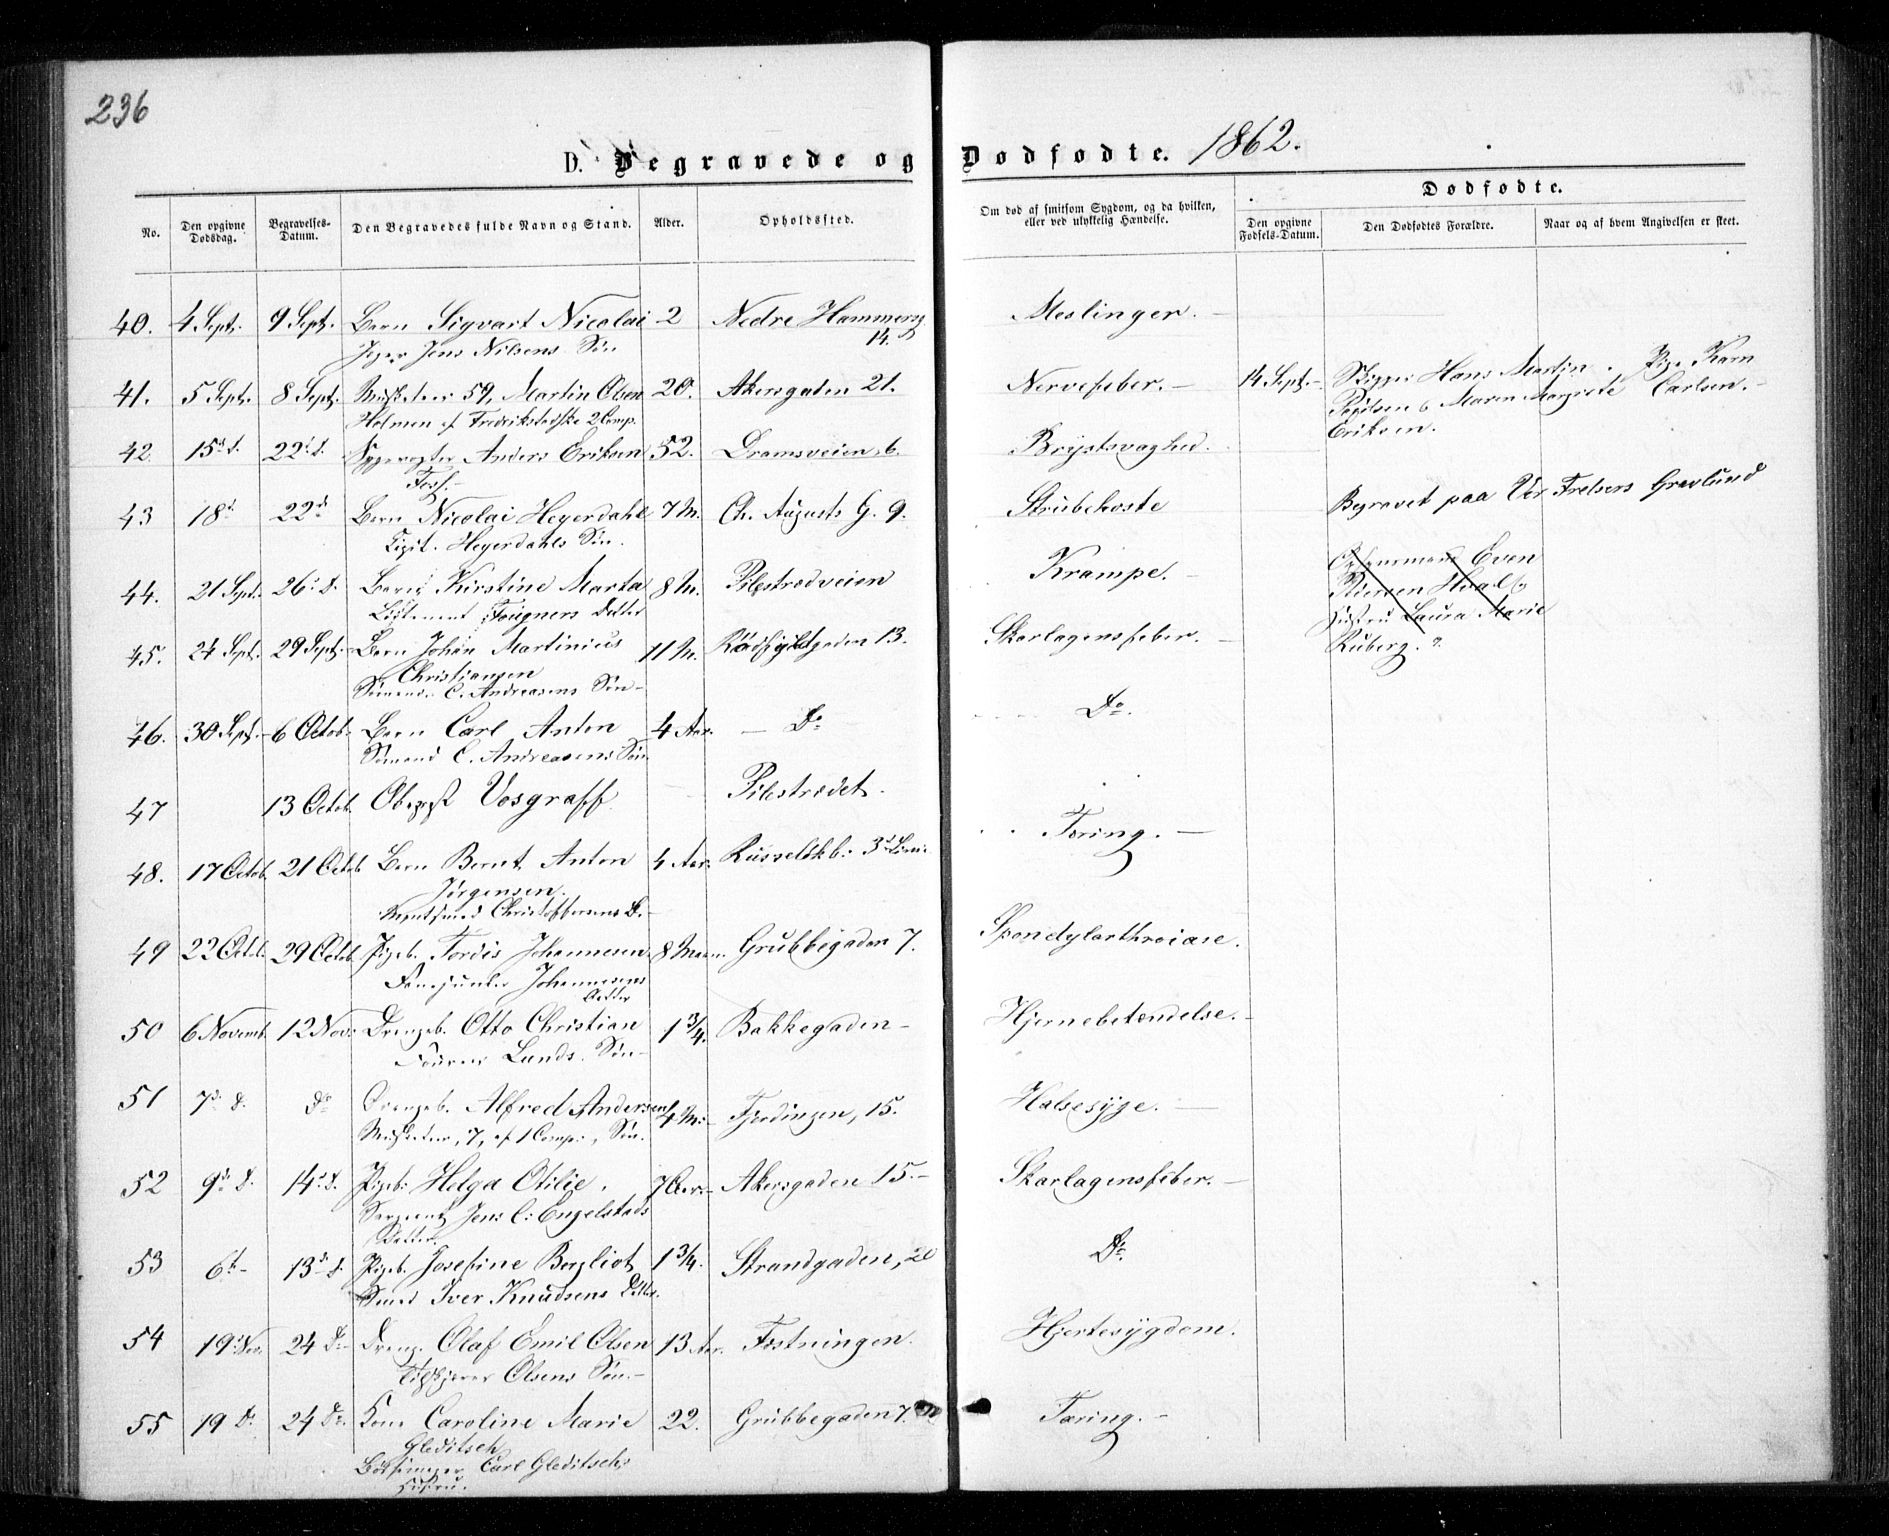 236
D. Begravede og Dødfødte. 1862.
Dødfødte.
No. Den opgivne Dødsdag. Begravelses-Datum. Den Begravedes fulde Navn og Stand. Alder. Opholdssted. Om død af smitsom Sygdom, og da hvilken, eller ved ulykkelig Hændelse. Den opgivne Fødsels-Datum. Den Dødfødtes Forældre. Naar og af hvem Angivelsen er skeet.
40. 4 Sept. 9 Sept. Barn Sigvart Nicolai 2 Nedre Hammersg. 14. Meslinger.
Jens Nilsens Søn
41. 5 Sept. 8 Sept. Musketeer 59, Martin Olsen 20. Akersgaden 21. Nervefeber. 14 Sept. Skipper Hans Martin Pige Karn
Holmen af Fredrikstadske 2 Comp. Maren Margrete Carlsen.
Eriksen.
42. 15 d. 22 d. Sygevogter Anders Eriksen 52. Dramsveien 6. Brystsvaghed.
43 18 d 22 d Barn Nicolai Heyerdahl 7 M. Ch. Augusts G. 9. Strubehoste Begravet paa Vor Frelsers Gravlund
Heyerdahls Søn.
44. 21 Sept. 26 d. Barn Kirstine Marta 8 M. Pilestrædveien Krampe. Even
Løitenant Fougners Datter Hval og
Hustru Laura Marie
Ruberg.
45. 24 Sept. 29 Sept. Barn Johan Martinius 11 M. Rødfyldgaden 13. Skarlagensfeber.
Christiansen
Sømand C. Andreasens Søn
46. 30 Sept. 6 Octob. Barn Carl Anton 4 Aar. Do Do.
Sømand C. Andreasens Søn
47 13 Octob. Vosgraff Pilestrædet.
48. 17 Octob. 21 Octob. Barn Bernt Anton 4 Aar. Russelökb. Tæring.
Jørgensen.
Christoffersens
49 22 Octob. 29 Octob. Pigeb. Tordis Johannesen 8 Maan. Grubbegaden 7. Spondylarthroiase.
Fanejunker Johannesens
Datter
50 6 Novemb. 12 Nov. Drengeb. Otto Christian 1 3/4. Bakkegaden Hjernebetændelse.
Fourer Lunds Søn
51 7 d. Do Drengeb. Alfred Andersen 4 M. Fjerdingen, 15. Halsesyge.
Musketeer, 7, af 1 Comp., Søn.
52 9 d. 14 d. Pigeb. Helga Otilie. 7 Aar. Akersgaden 15. Skarlagensfeber.
Sergeant Jens C. Engelstads
Datter.
53 6te 13 d. Pigeb. Josefine Bergliot 1 3/4. Strandgaden, 20 Do.
Smed Iver Knudsens Datter.
54 19 Nov. 24 Do Dreng. Olaf Emil Olsen 13 Aar. Fæstningen. Hjertesygdom.
Olsens Søn.
55 19 Do 24 Do. Kone Caroline Marie 22. Grubbegaden 7. Tæring.
Gleditsch
Bøssemager Carl Gleditschs
Hustru.